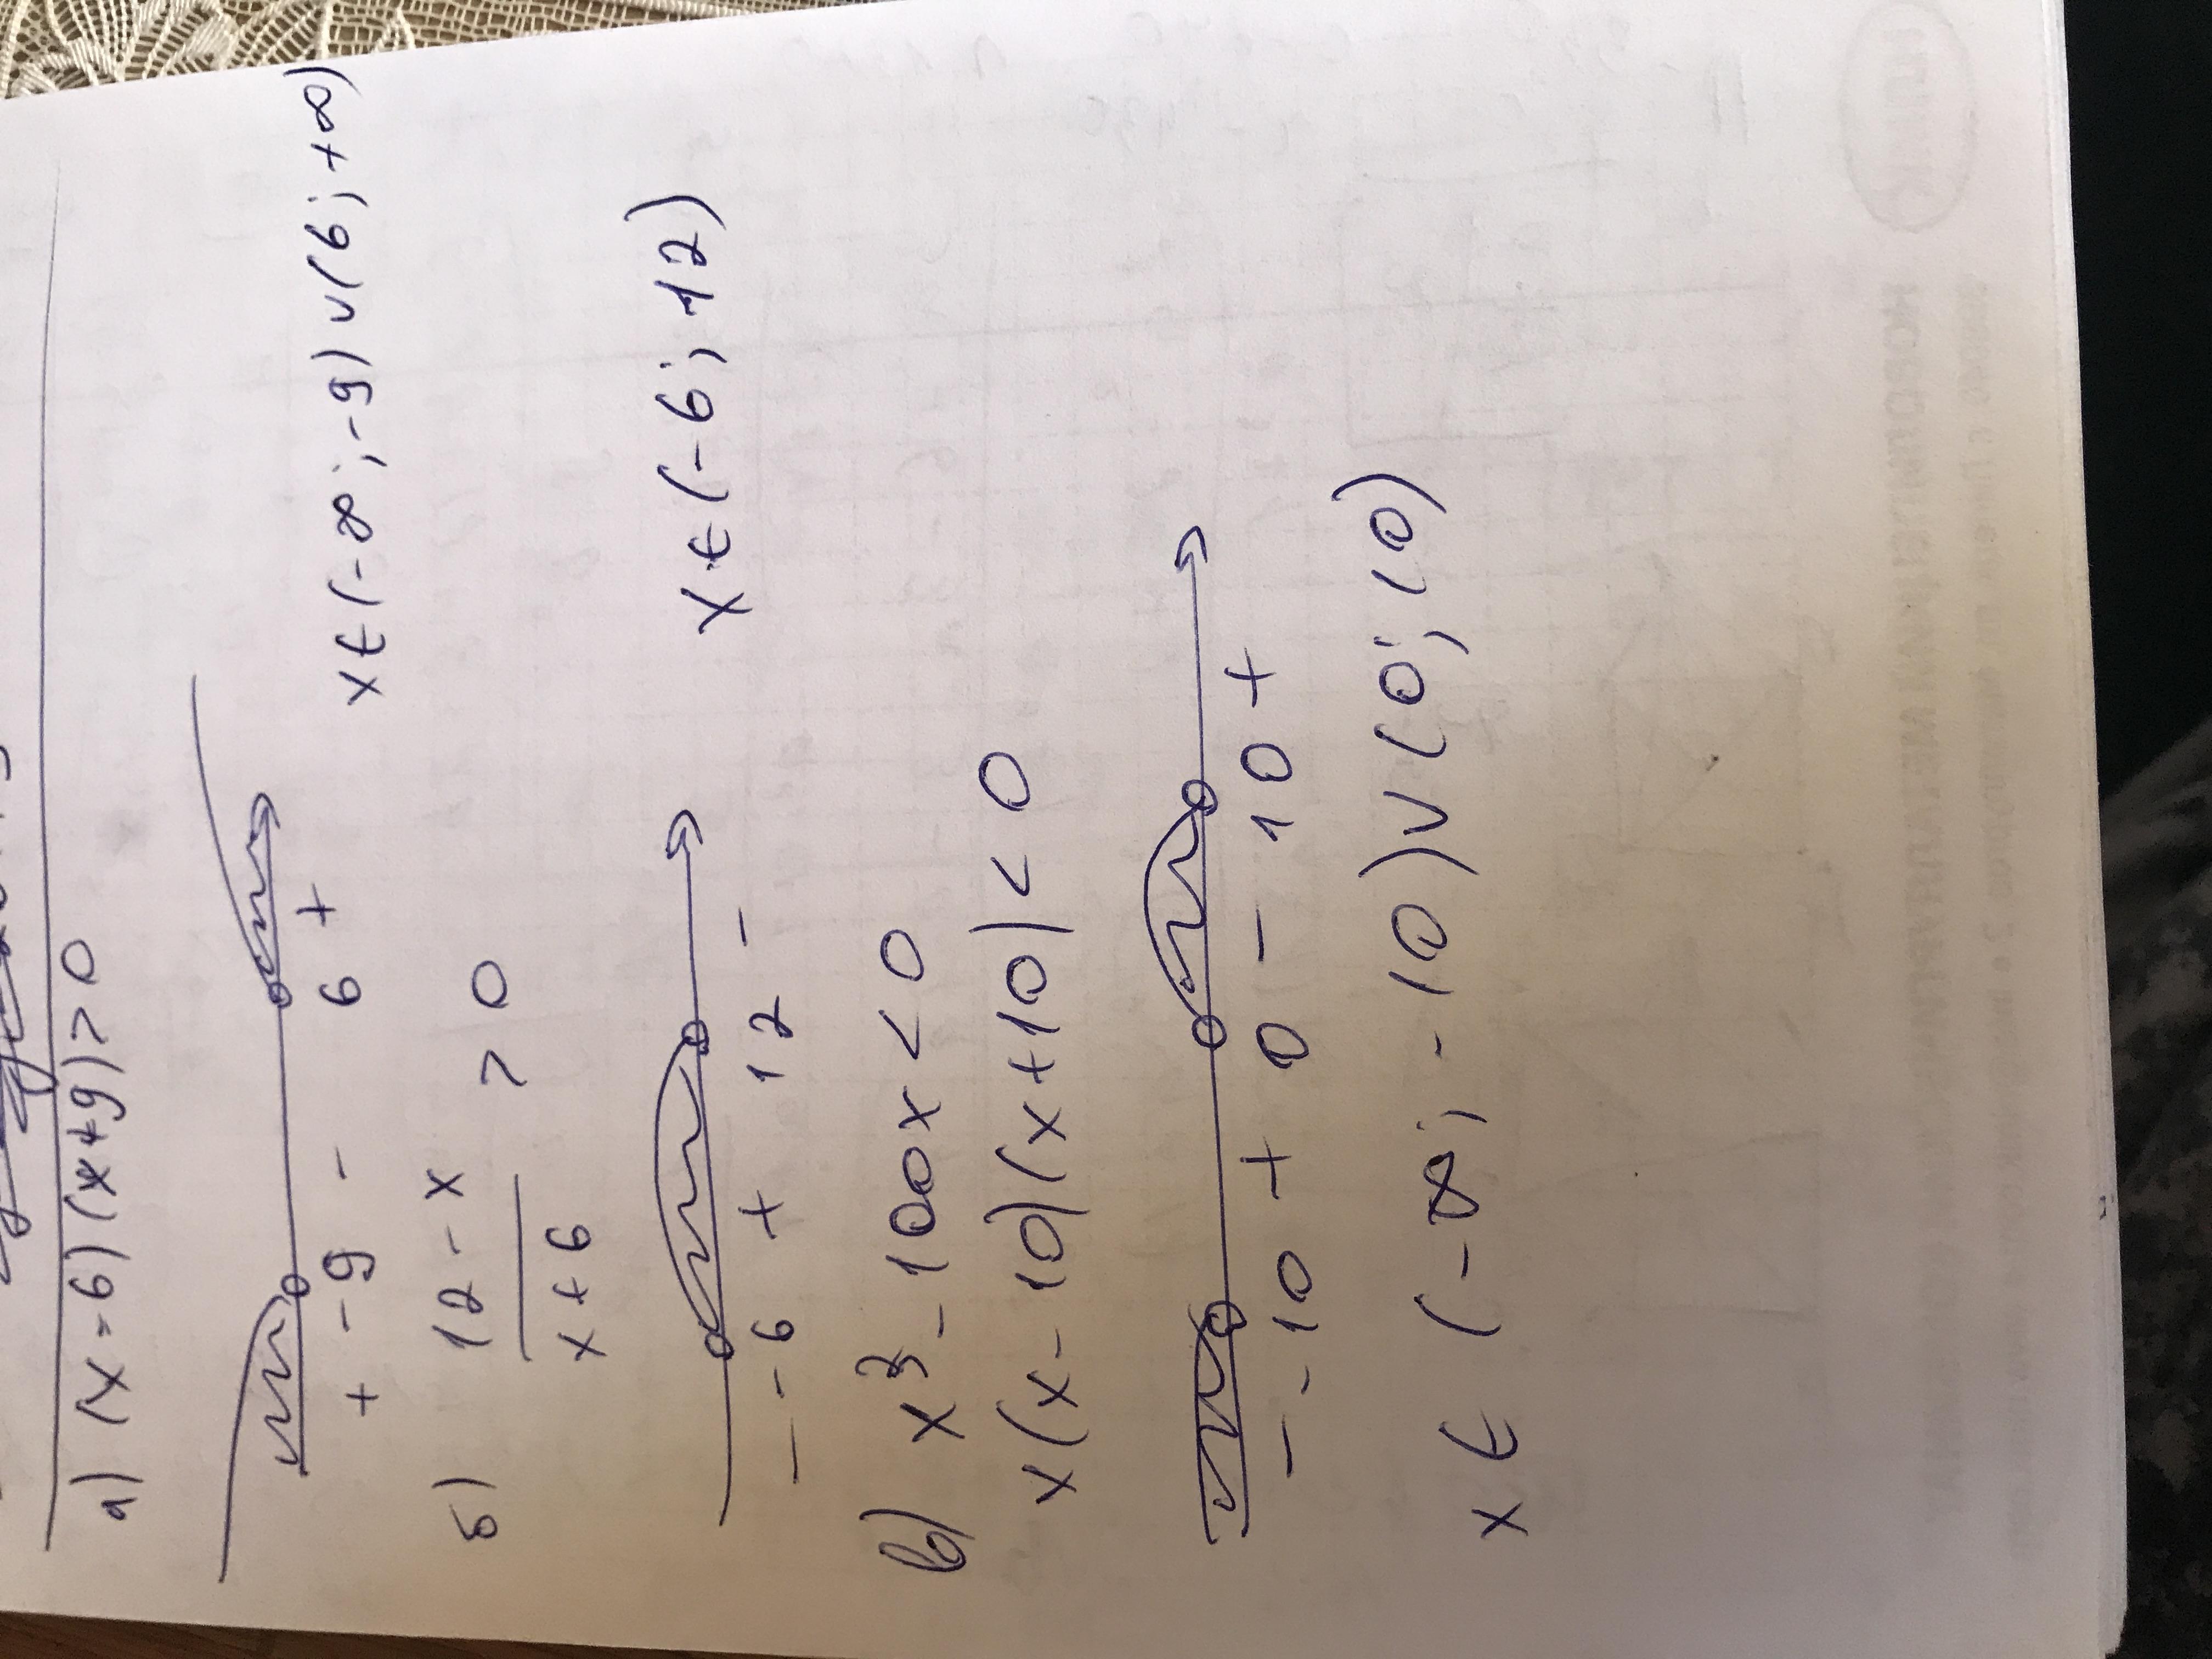 а) (x-6)(x+9)>0
+ -9 - 6 +
x∈(-∞;-9)∪(6;+∞)
б) 12-x
x+6
>0
- -6 + 12 -
x∈(-6;12)
в) x³-100x<0
x(x-10)(x+10)<0
- -10 + 0 - 10 +
x∈(-∞;-10)∪(0;10)